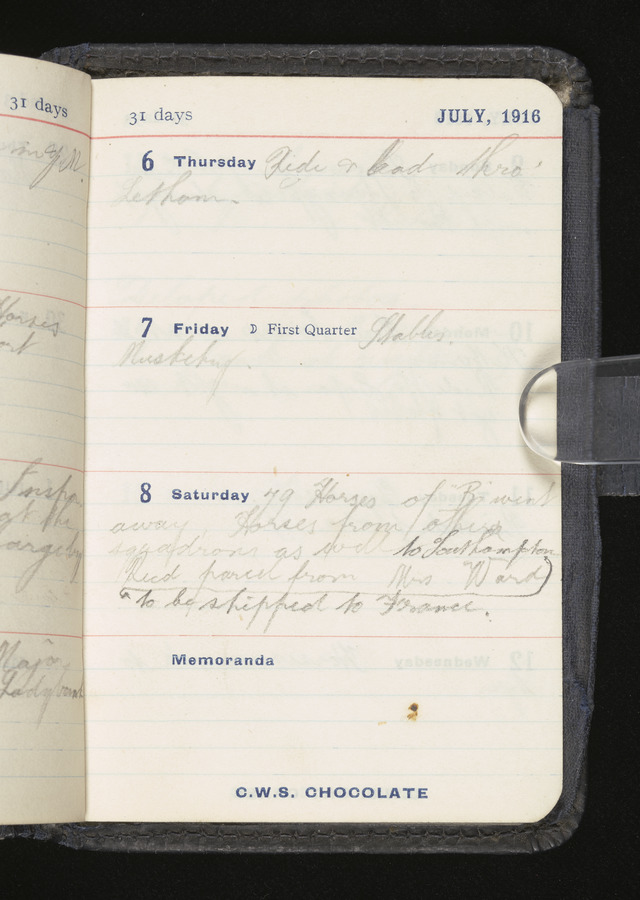 31 days
31 days JULY, 1916
6 Thursday Ride & lead thro'
Letham.
7 Friday First Quarter Stables.
Musketry.
8 Saturday 49 Horses of "B" went
away Horses from other
squadrons as well to Southampton
Recd parcel from Mrs Ward
to be shipped to France.
Memoranda
C.W.S. CHOCOLATE
Horses
Major
Ladybank